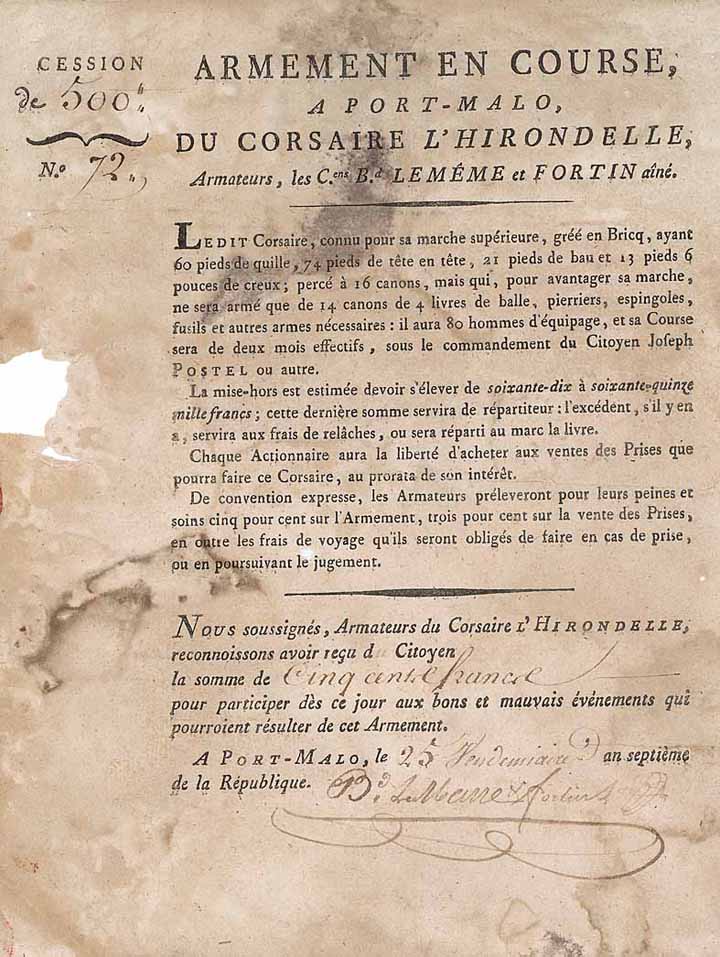 CESSION
de 500"
N.º 72.,
ARMEMENT EN COURSE,
A PORT-MALO,
DU CORSAIRE L'HIRONDELLE,
Armateurs, les C.ens B.d LEMÊME et FORTIN aîné.
LEDIT Corsaire, connu pour sa marche supérieure, gréé en Bricq, ayant
60 pieds de quille, 74 pieds de tête en tête, 21 pieds de bau et 13 pieds 6
pouces de creux; percé à 16 canons, mais qui, pour avantager sa marche,
ne sera armé que de 14 canons de 4 livres de balle, pierriers, espingoles,
fusils et autres armes nécessaires : il aura 80 hommes d'équipage, et sa Course
sera de deux mois effectifs, sous le commandement du Citoyen Joseph
POSTEL ou autre.
La mise-hors est estimée devoir s'élever de soixante-dix à soixante-quinze
mille francs; cette dernière somme servira de répartiteur : l'excédent, s'il y en
a, servira aux frais de relâches, ou sera réparti au marc la livre.
Chaque Actionnaire aura la liberté d'acheter aux ventes des Prises que
pourra faire ce Corsaire, au prorata de son intérêt.
De convention expresse, les Armateurs préleveront pour leurs peines et
soins cinq pour cent sur l'Armement, trois pour cent sur la vente des Prises,
en outre les frais de voyage qu'ils seront obligés de faire en cas de prise,
ou en poursuivant le jugement.
NOUS soussignés, Armateurs du Corsaire L'HIRONDELLE,
reconnoissons avoir reçu du Citoyen
la somme de Cinq cents francs
pour participer dès ce jour aux bons et mauvais événements qui
pourroient résulter de cet Armement.
A PORT-MALO, le 25 Vendemiaire an septième
de la République. B.d LeMeme & fortin